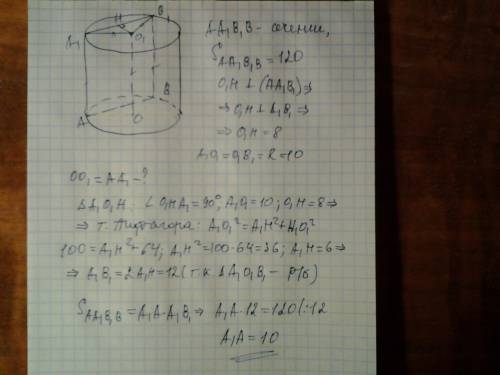 H B₁
A₁ O₁
B
A O
AA₁B₁B - сечение,
S AA₁B₁B = 120
O₁H ⊥ (AA₁B₁) ⇒
⇒ O₁H ⊥ A₁B₁ ⇒
⇒ O₁H = 8
A₁O₁ = O₁B₁ = R = 10
OO₁ = AA₁ - ?
Δ A₁O₁H: ∠ O₁HA₁ = 90°, A₁O₁ = 10; O₁H = 8 ⇒
⇒ т. Пифагора: A₁O₁² = A₁H² + HO₁²
100 = A₁H² + 64; A₁H² = 100 - 64 = 36; A₁H = 6 ⇒
⇒ A₁B₁ = 2A₁H = 12 (т.к. Δ A₁O₁B₁ - р/б)
S AA₁B₁B = A₁A · A₁B₁ ⇒ A₁A · 12 = 120 /:12
A₁A = 10